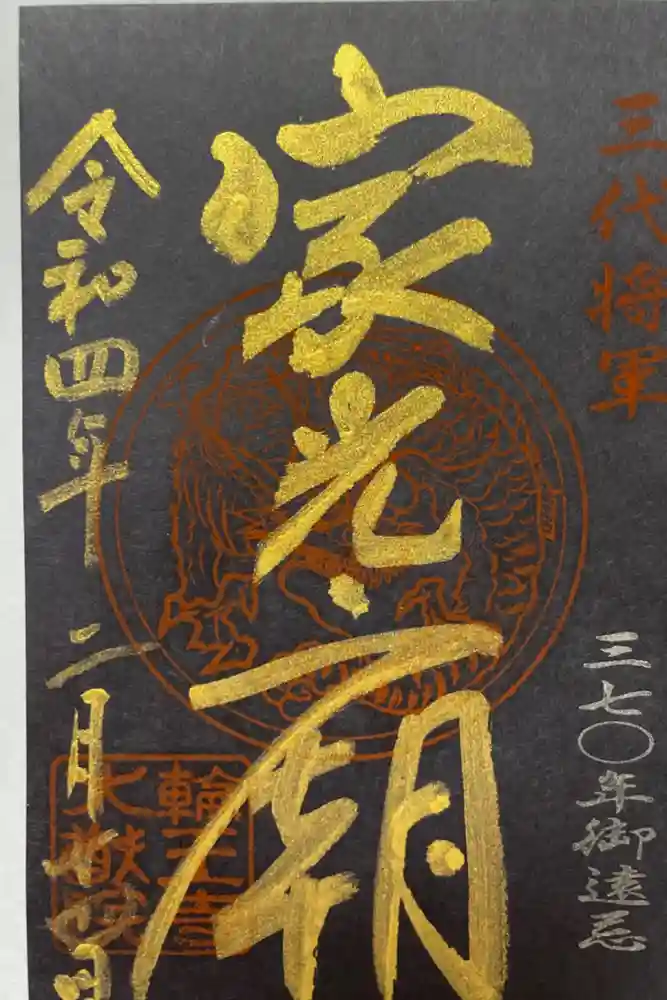 三代将軍
三七〇年御遠忌
家光廟
輪王寺
大猷院
令和四年二月日